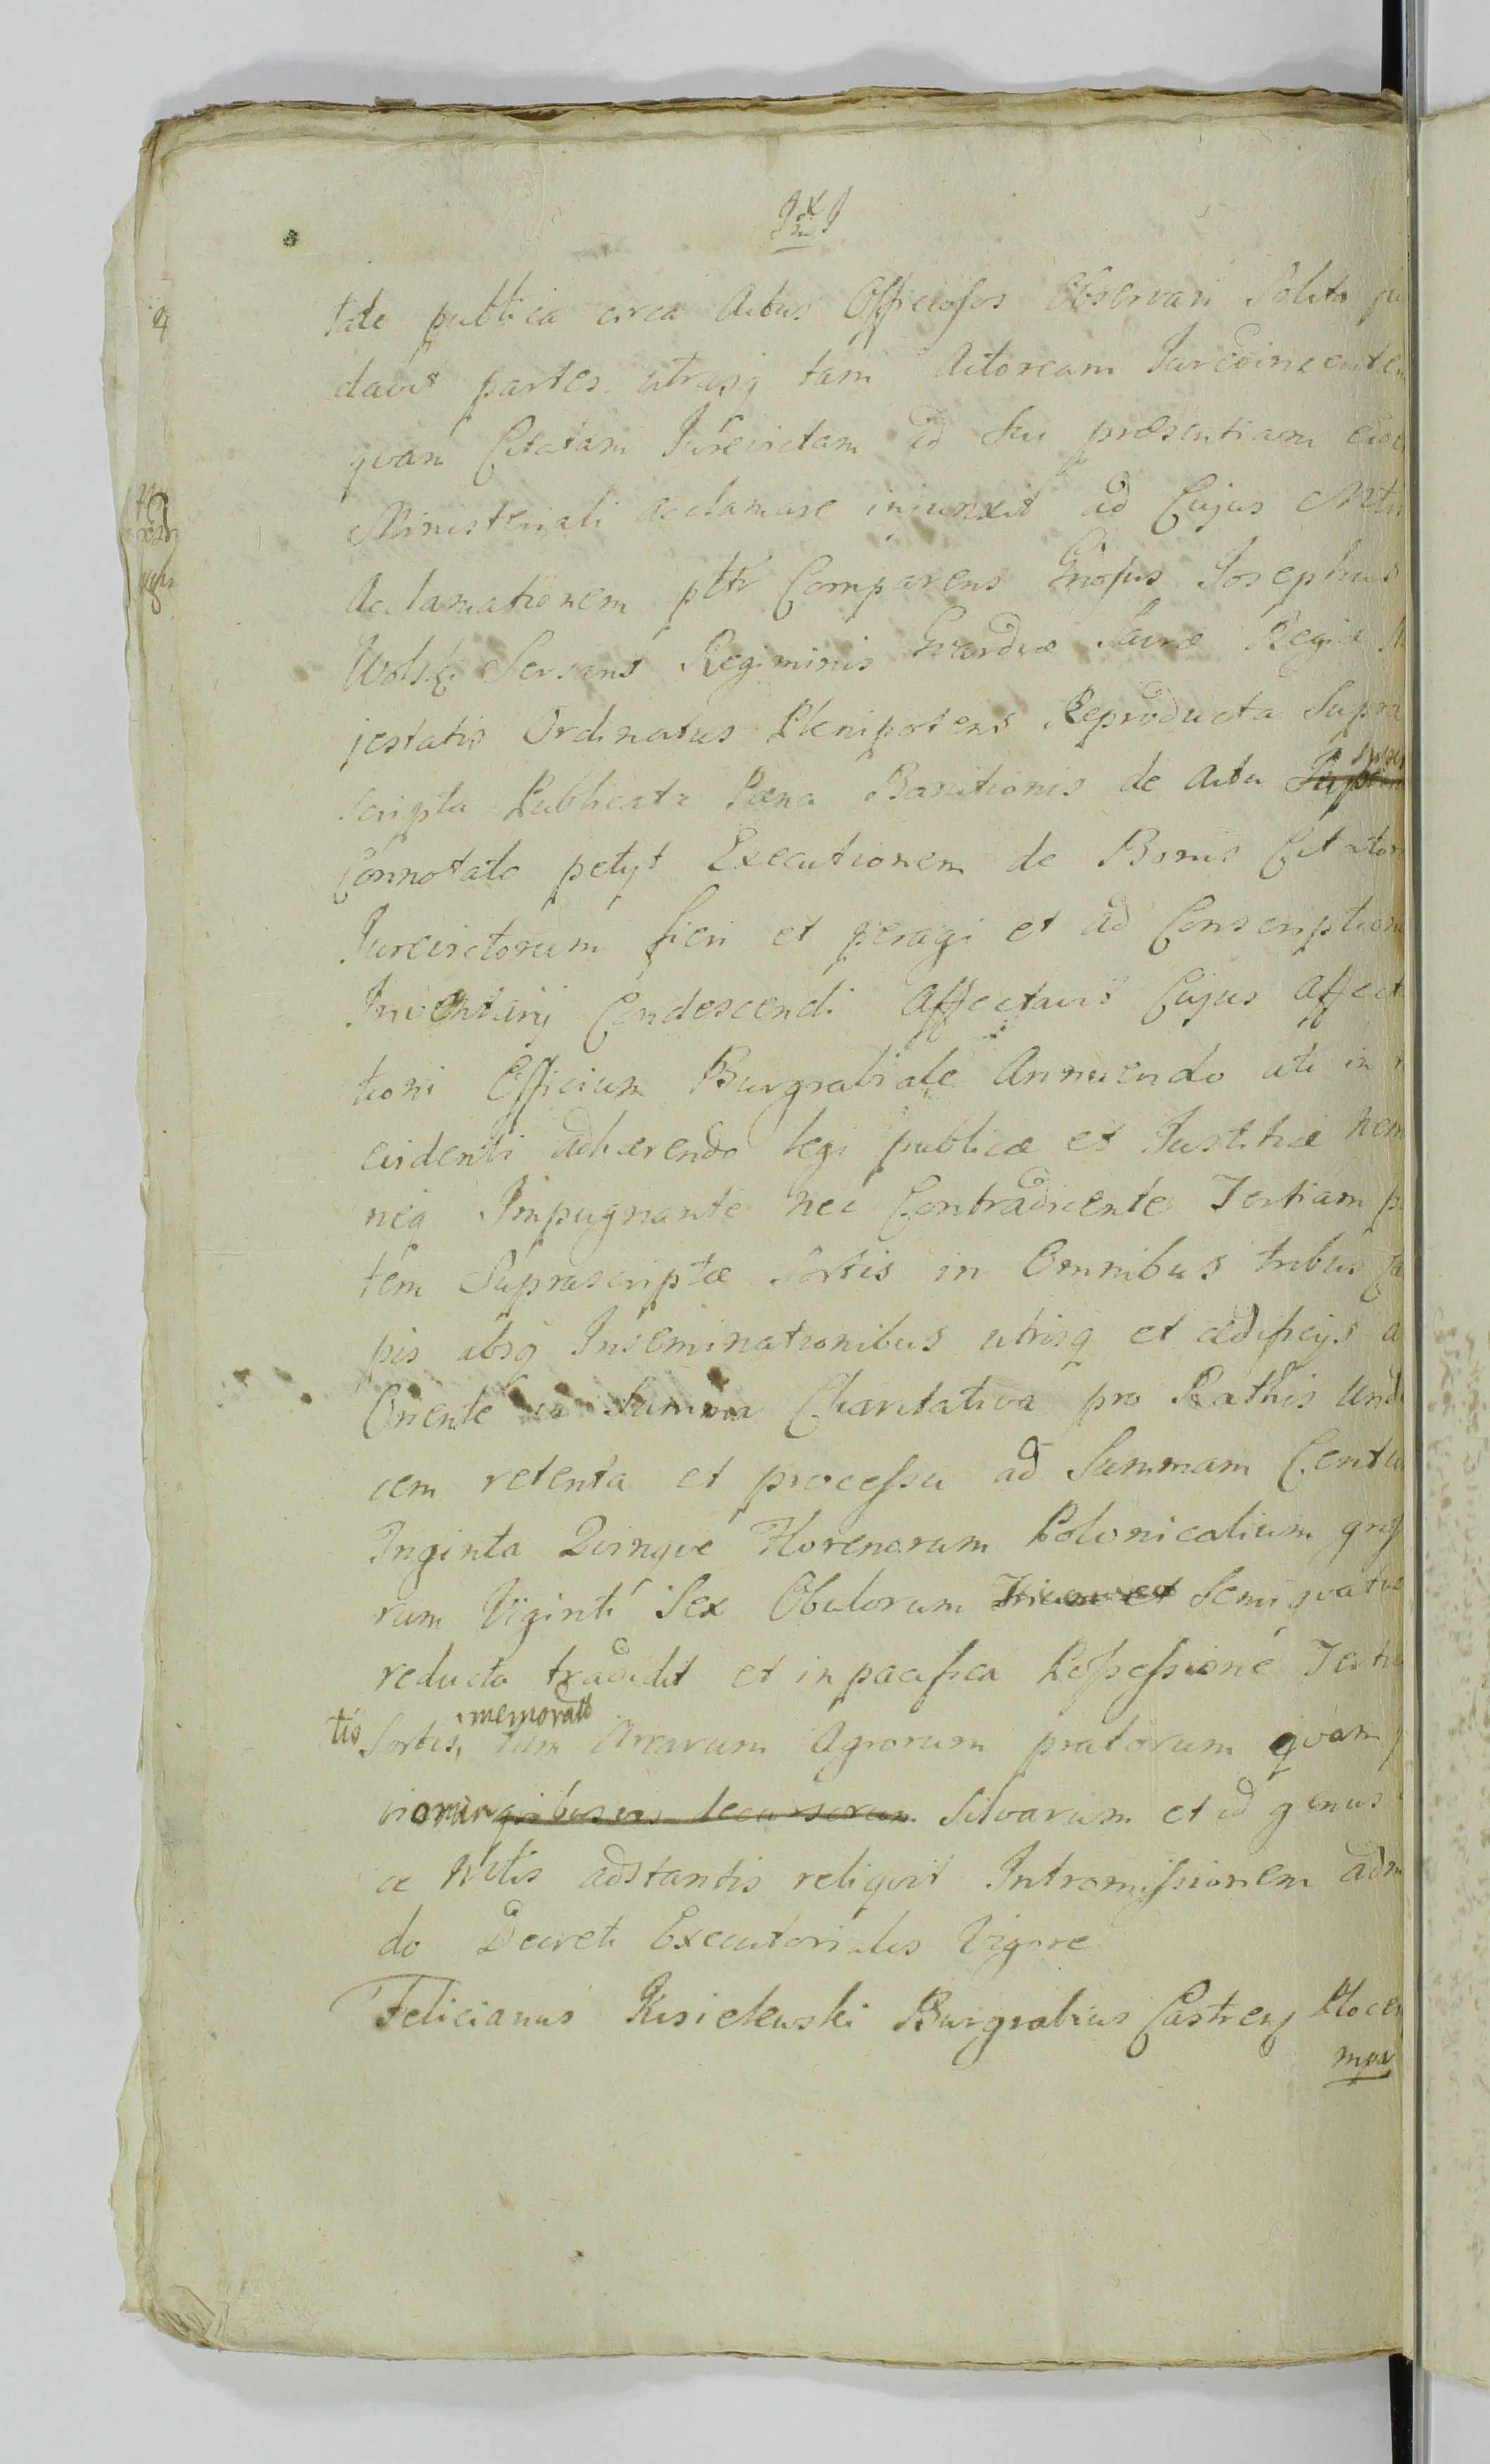 tate publica circa Actus Officiosos Observari Solita
davit partes utrasq tam Actoream Jurevincente
quam Citatam Jurevictam ad Sui præsentiam
Ministeriali acclamare injunxit ad Cujus
Acclamationem pltr Comparens Gnosus Josephus
Wolski Serians Regiminis Gvardiæ Sacræ Regiæ
jestatis Ordinatus Plenipotens Reproducta Supra
scripta Publicata Pæna Banitionis de Actu
Connotato petijt Executionem de Bonis Citator
Jurevictorum fieri et peragi et ad Conscription
Inventarij Condescendi Affectavit Cujus Affect
tioni Officium Burgrabiale Annuendo uti in
evidenti adhærendo legi publicæ et Justitiæ nem
neq Impugnante nec Contradicente Tertiam
tem Suprascriptæ Sortis in Omnibus tribus
pis absq Inseminationibus utrisq et ædificijs
Oriente in Summa Charitativa pro Rathis und
cem retenta et processu ad Summam Centu
Triginta Quinque Florenorum Polonicalium
rum Viginti Sex Obulorum Semi
reducta tradidit et in pacifica Possessione
tis Sortis, memorat tam Arearum Agrorum pratorum qvam
Silvarum et id genus
æ Mtlis adstantis reliqvit Intromissionem
do Decreti Executorialis Vigore
Felicianus Kisielewski Burgrabius Castren Plocen
mpa